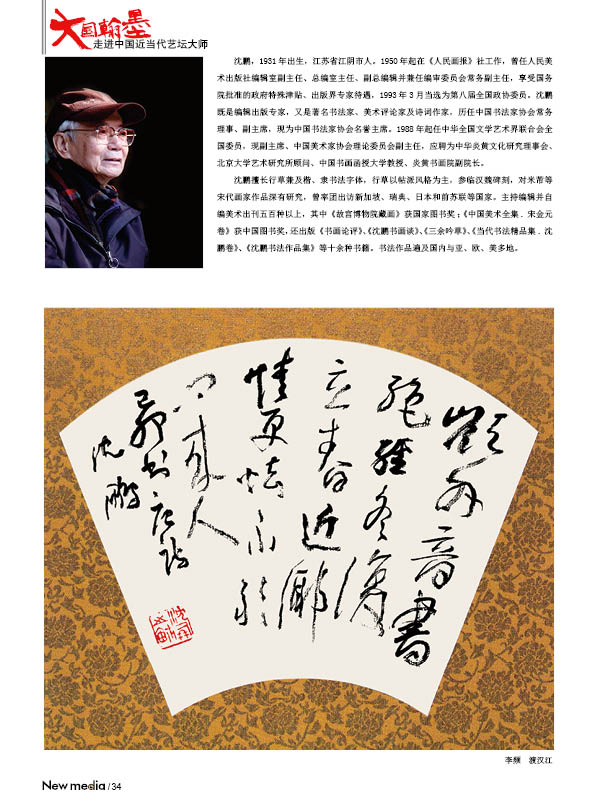 大国翰墨
走进中国近当代艺坛大师
沈鹏，1931年出生，江苏省江阴市人。1950年起在《人民画报》社工作，曾任人民美
术出版社编辑室副主任、总编室主任、副总编辑并兼任编审委员会常务副主任，享受国务
院批准的政府特殊津贴、出版界专家待遇，1993年3月当选为第八届全国政协委员。沈鹏
既是编辑出版专家，又是著名书法家、美术评论家及诗词作家，历任中国书法家协会常务
理事、副主席，现为中国书法家协会名誉主席。1988年起任中华全国文学艺术界联合会全
国委员，现副主席、中国美术家协会理论委员会副主任，应聘为中华炎黄文化研究理事会、
北京大学艺术研究所顾问、中国书画函授大学教授、炎黄书画院副院长。
沈鹏擅长行草兼及楷、隶书法字体，行草以帖派风格为主，参临汉魏碑刻，对米芾等
宋代画家作品深有研究，曾率团出访新加坡、瑞典、日本和前苏联等国家。主持编辑并自
编美术出刊五百种以上，其中《故宫博物院藏画》获国家图书奖；《中国美术全集．宋金元
卷》获中国图书奖，还出版《书画论评》、《沈鹏书画谈》、《三余吟草》、《当代书法精品集．沈
鹏卷》、《沈鹏书法作品集》等十余种书籍。书法作品遍及国内与亚、欧、美多地。
嶺外音書
絕經冬復
立春近鄉
情更怯不敢
问来人
书唐诗
沈鹏
李频 渡汉江
New media / 34